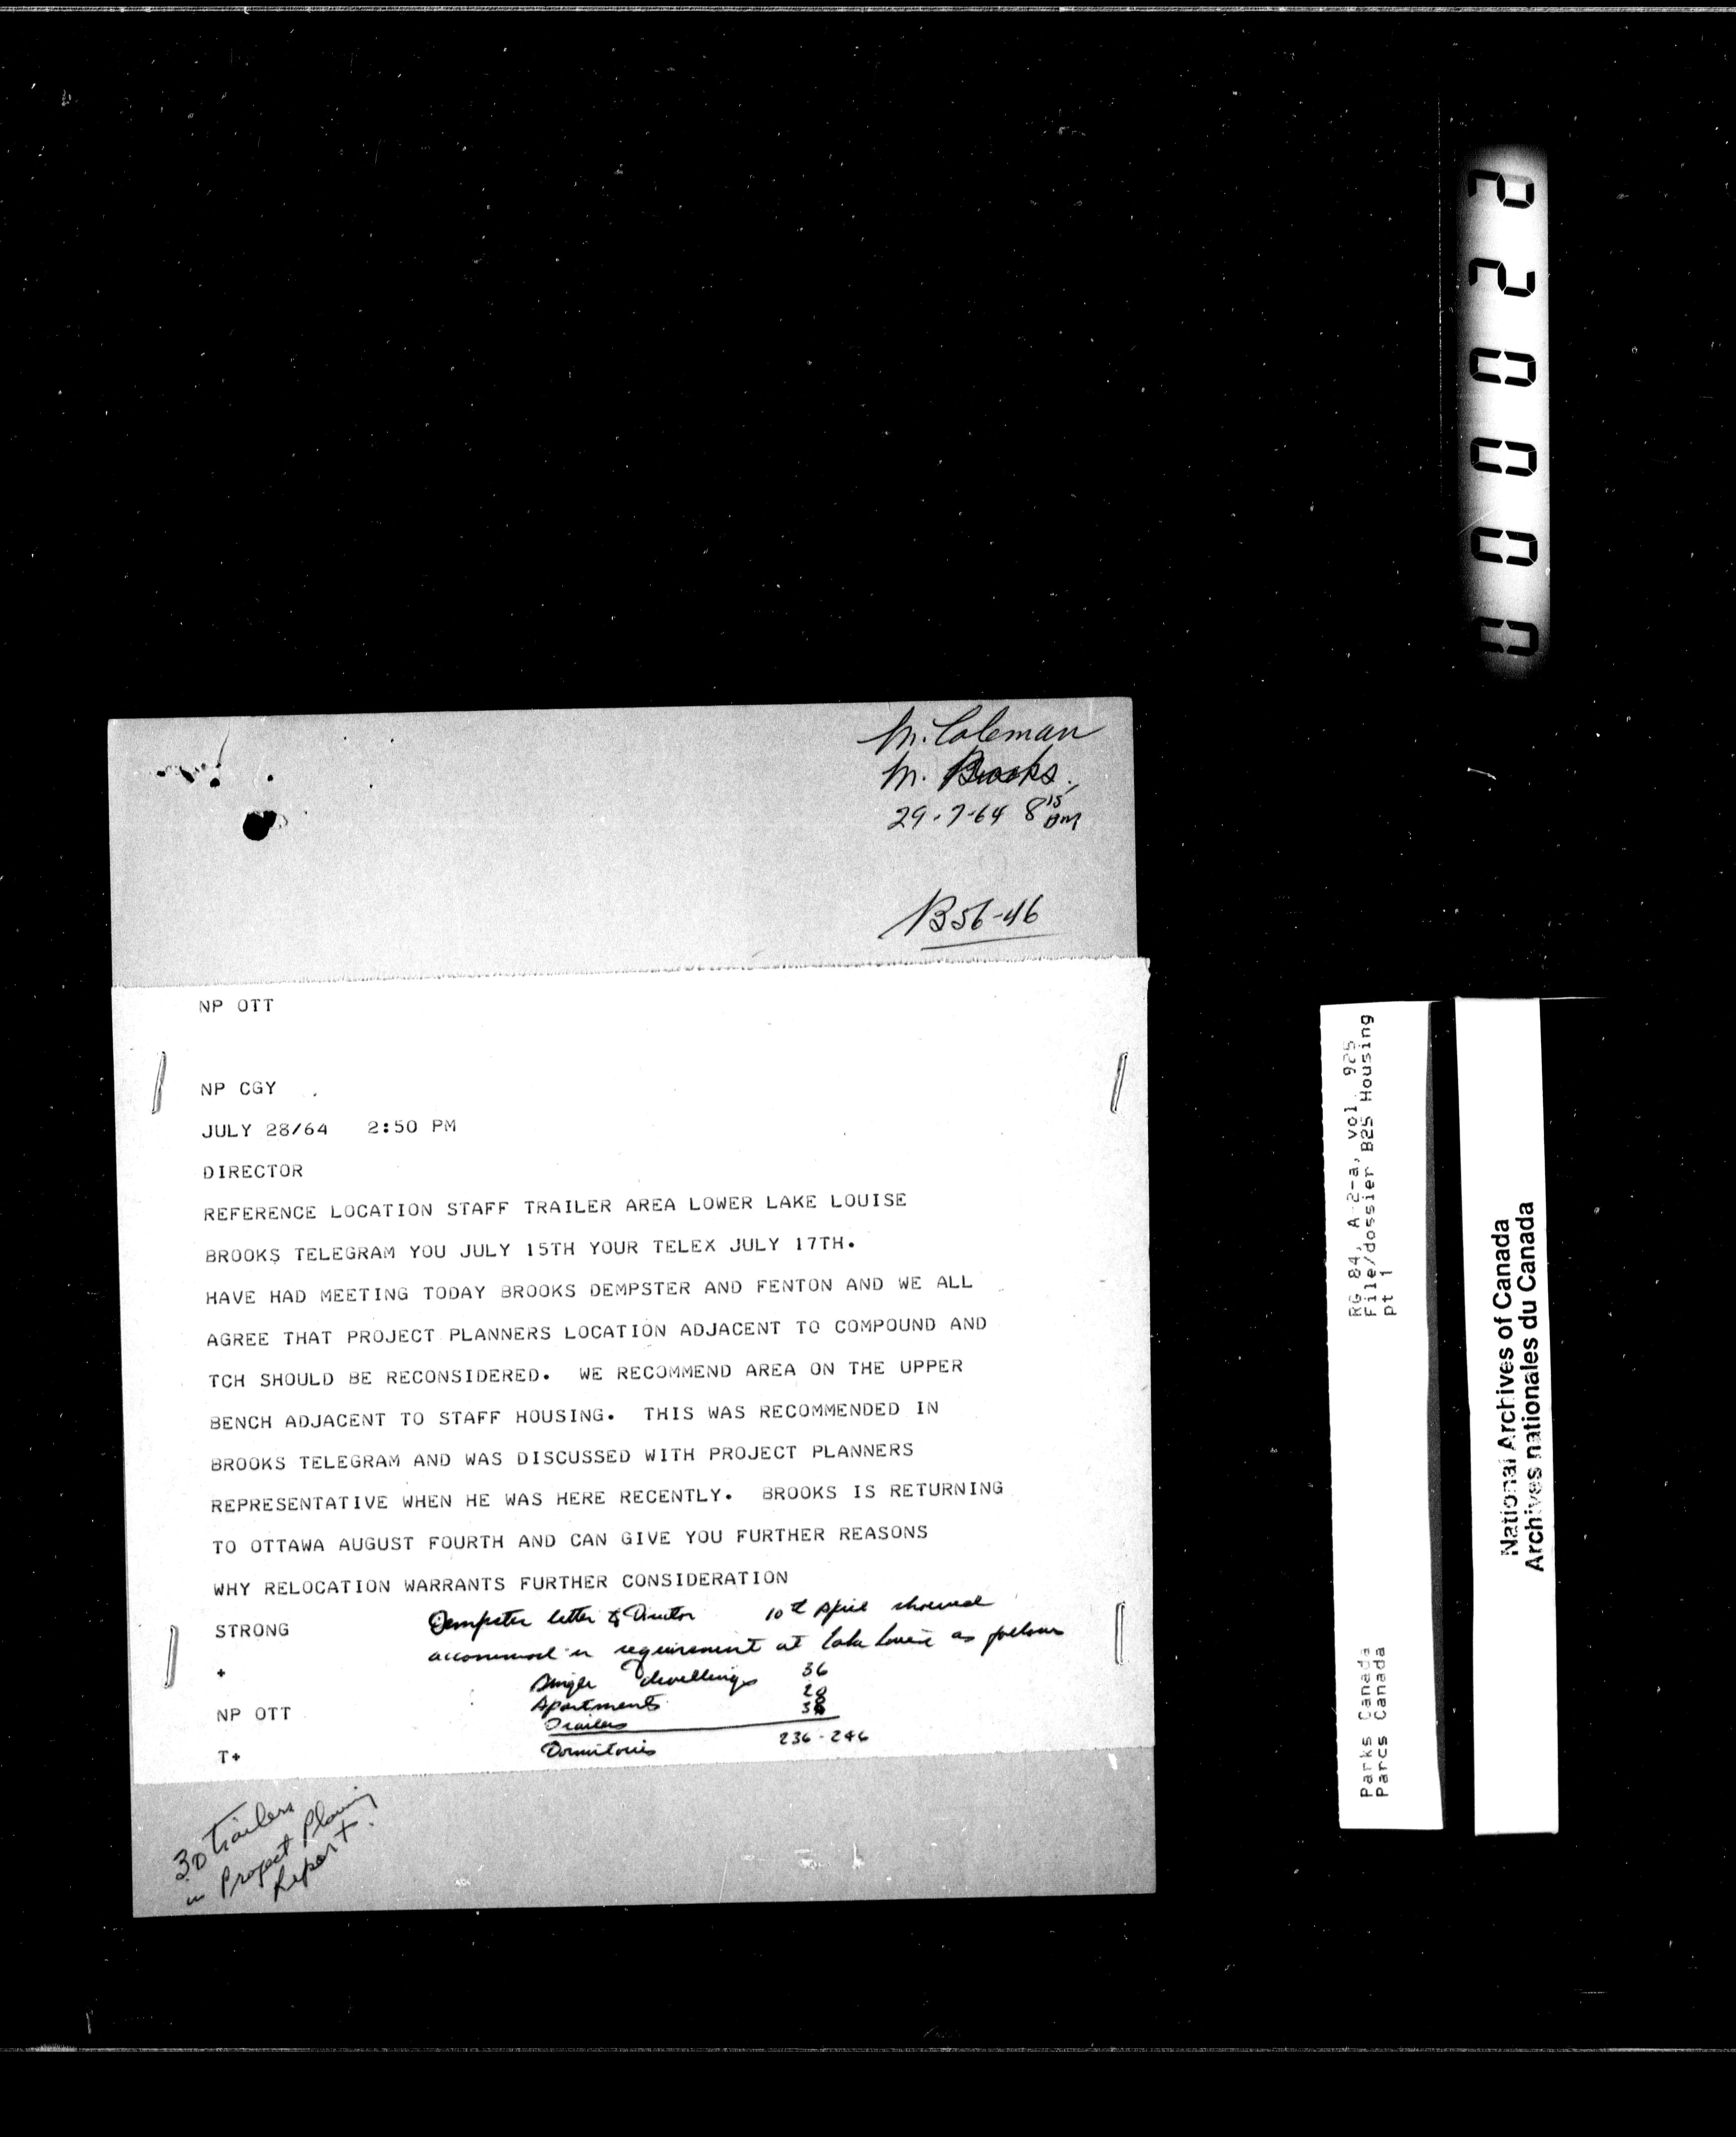 M. Coleman
M. Brooks.
29-7-64 8 15 AM
B56-46
NP OTT
NP CGY
JULY 28/64 2:50 PM
DIRECTOR
REFERENCE LOCATION STAFF TRAILER AREA LOWER LAKE LOUISE
BROOKS TELEGRAM YOU JULY 15TH YOUR TELEX JULY 17TH.
HAVE HAD MEETING TODAY BROOKS DEMPSTER AND FENTON AND WE ALL
AGREE THAT PROJECT PLANNERS LOCATION ADJACENT TO COMPOUND AND
TCH SHOULD BE RECONSIDERED. WE RECOMMEND AREA ON THE UPPER
BENCH ADJACENT TO STAFF HOUSING. THIS WAS RECOMMENDED IN
BROOKS TELEGRAM AND WAS DISCUSSED WITH PROJECT PLANNERS
REPRESENTATIVE WHEN HE WAS HERE RECENTLY. BROOKS IS RETURNING
TO OTTAWA AUGUST FOURTH AND CAN GIVE YOU FURTHER REASONS
WHY RELOCATION WARRANTS FURTHER CONSIDERATION
STRONG
+
NP OTT
T+
Dempster letter to Director 10th April showed
requirement at Lake Louise as follows
Single dwellings 36
Apartments 20
Trailers
Dormitories 236-246
30 Trailers
in Project Planning
Report.
220000
RG 84, A-2-a, vol. 925
File/dossier B25 Housing
pt 1
Parks Canada
Parcs Canada
National Archives of Canada
Archives nationales du Canada